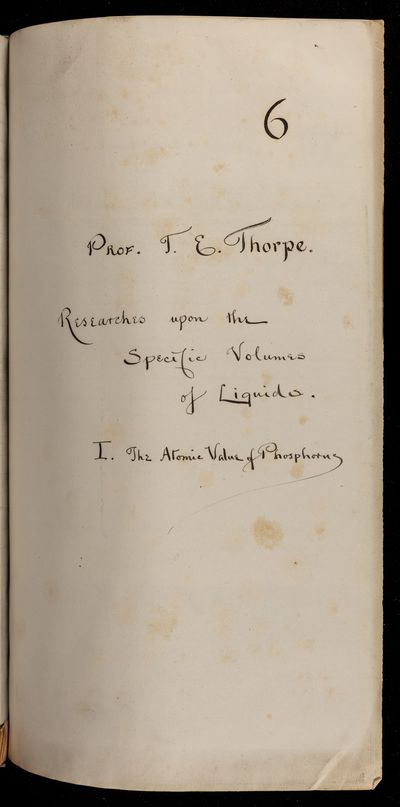 6
Prof. T. E. Thorpe.
Researches upon the
Specific Volumes
of Liquids.
I. The Atomic Value of Phosphorus